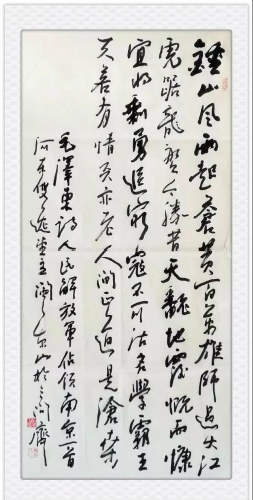 鍾山風雨起蒼黃百万雄師過大江
虎踞龍盤今勝昔天翻地覆慨而慷
宜將剩勇追窮寇不可沽名學霸王
天若有情天亦老人間正道是滄桑
毛澤東詩人民解放軍佔領南京一首
山於三門齋